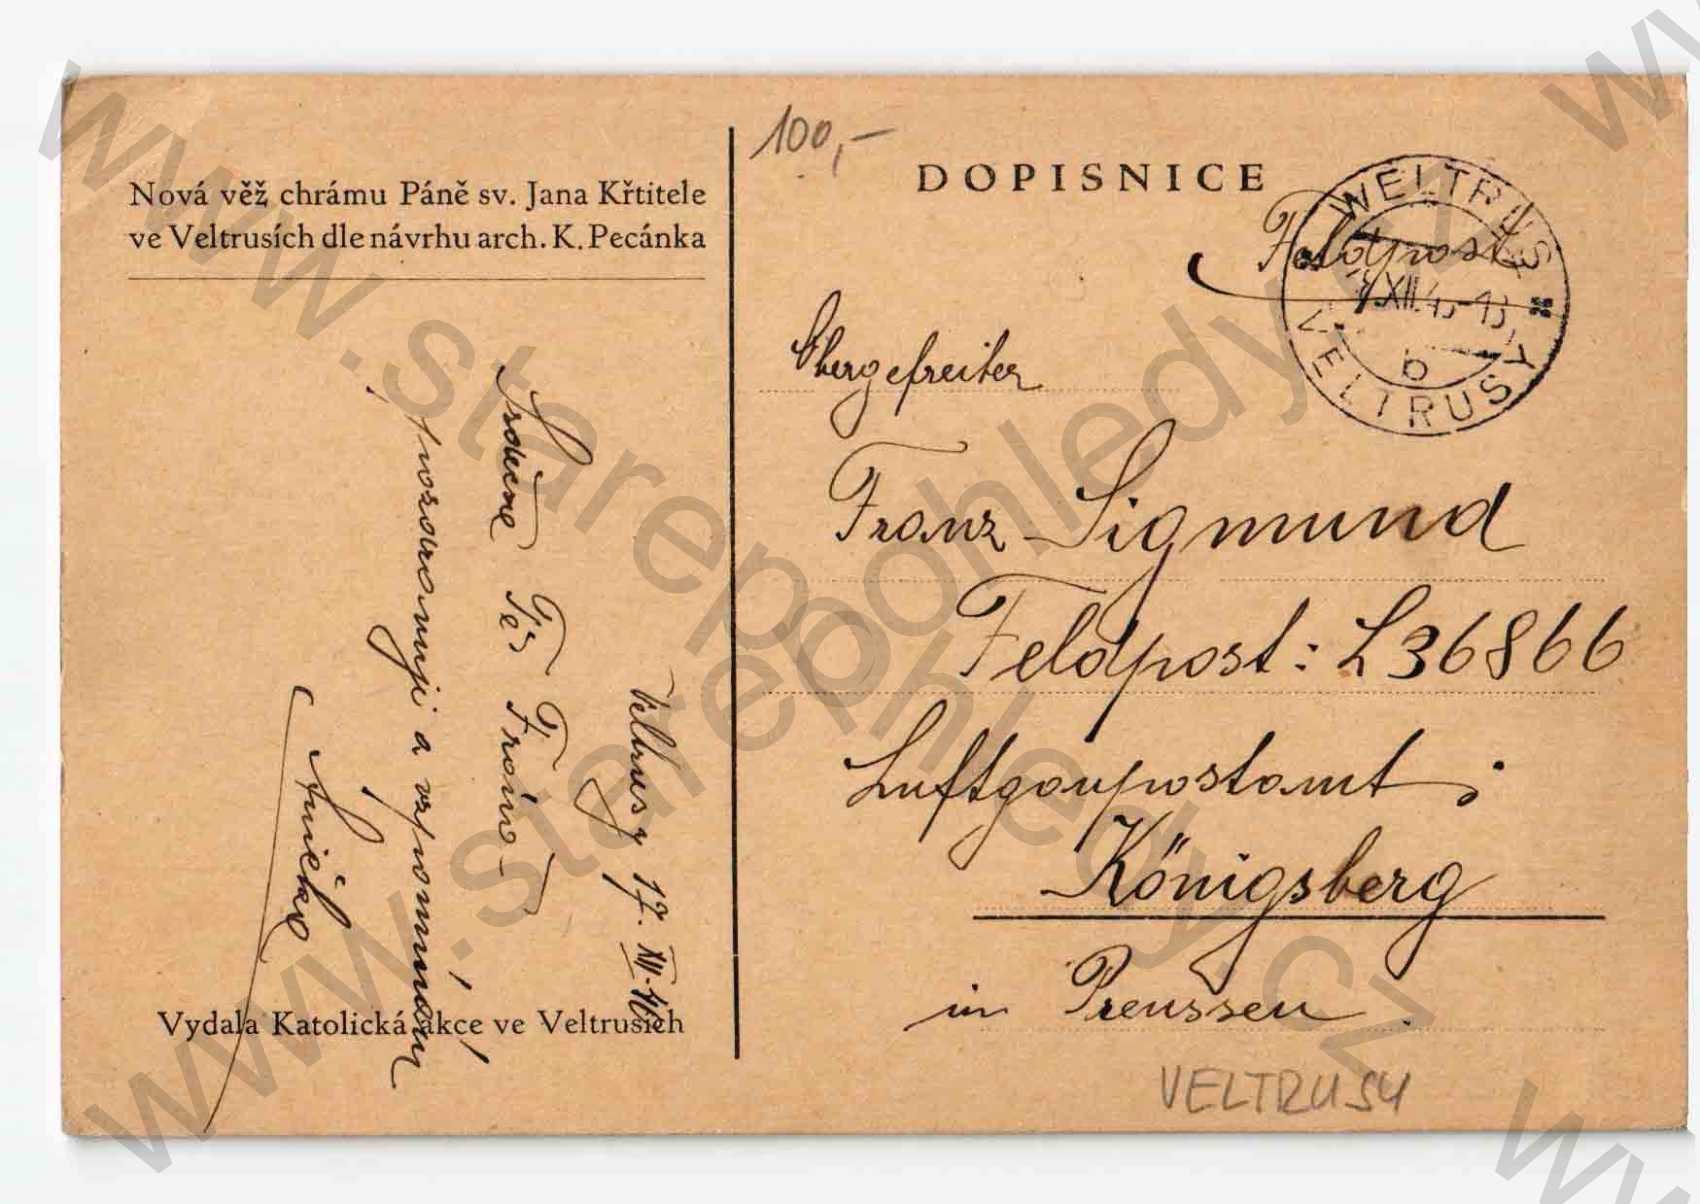 Nová věž chrámu Páně sv. Jana Křtitele
ve Veltrusích dle návrhu arch. K. Pecánka
Veltrusy 17. XII.
Srdečně Tě
pozdravuji a vzpomínám
Vydala Katolická akce ve Veltrusích
100,-
DOPISNICE
WELTRUS
VELTRUSY
b
Feldpost
Obergefreiter
Franz Sigmund
Feldpost: L36866
Luftgaupostamt:
Königsberg
in Preussen.
VELTRUSY
www.starepohledy.cz
www.starepohledy.cz